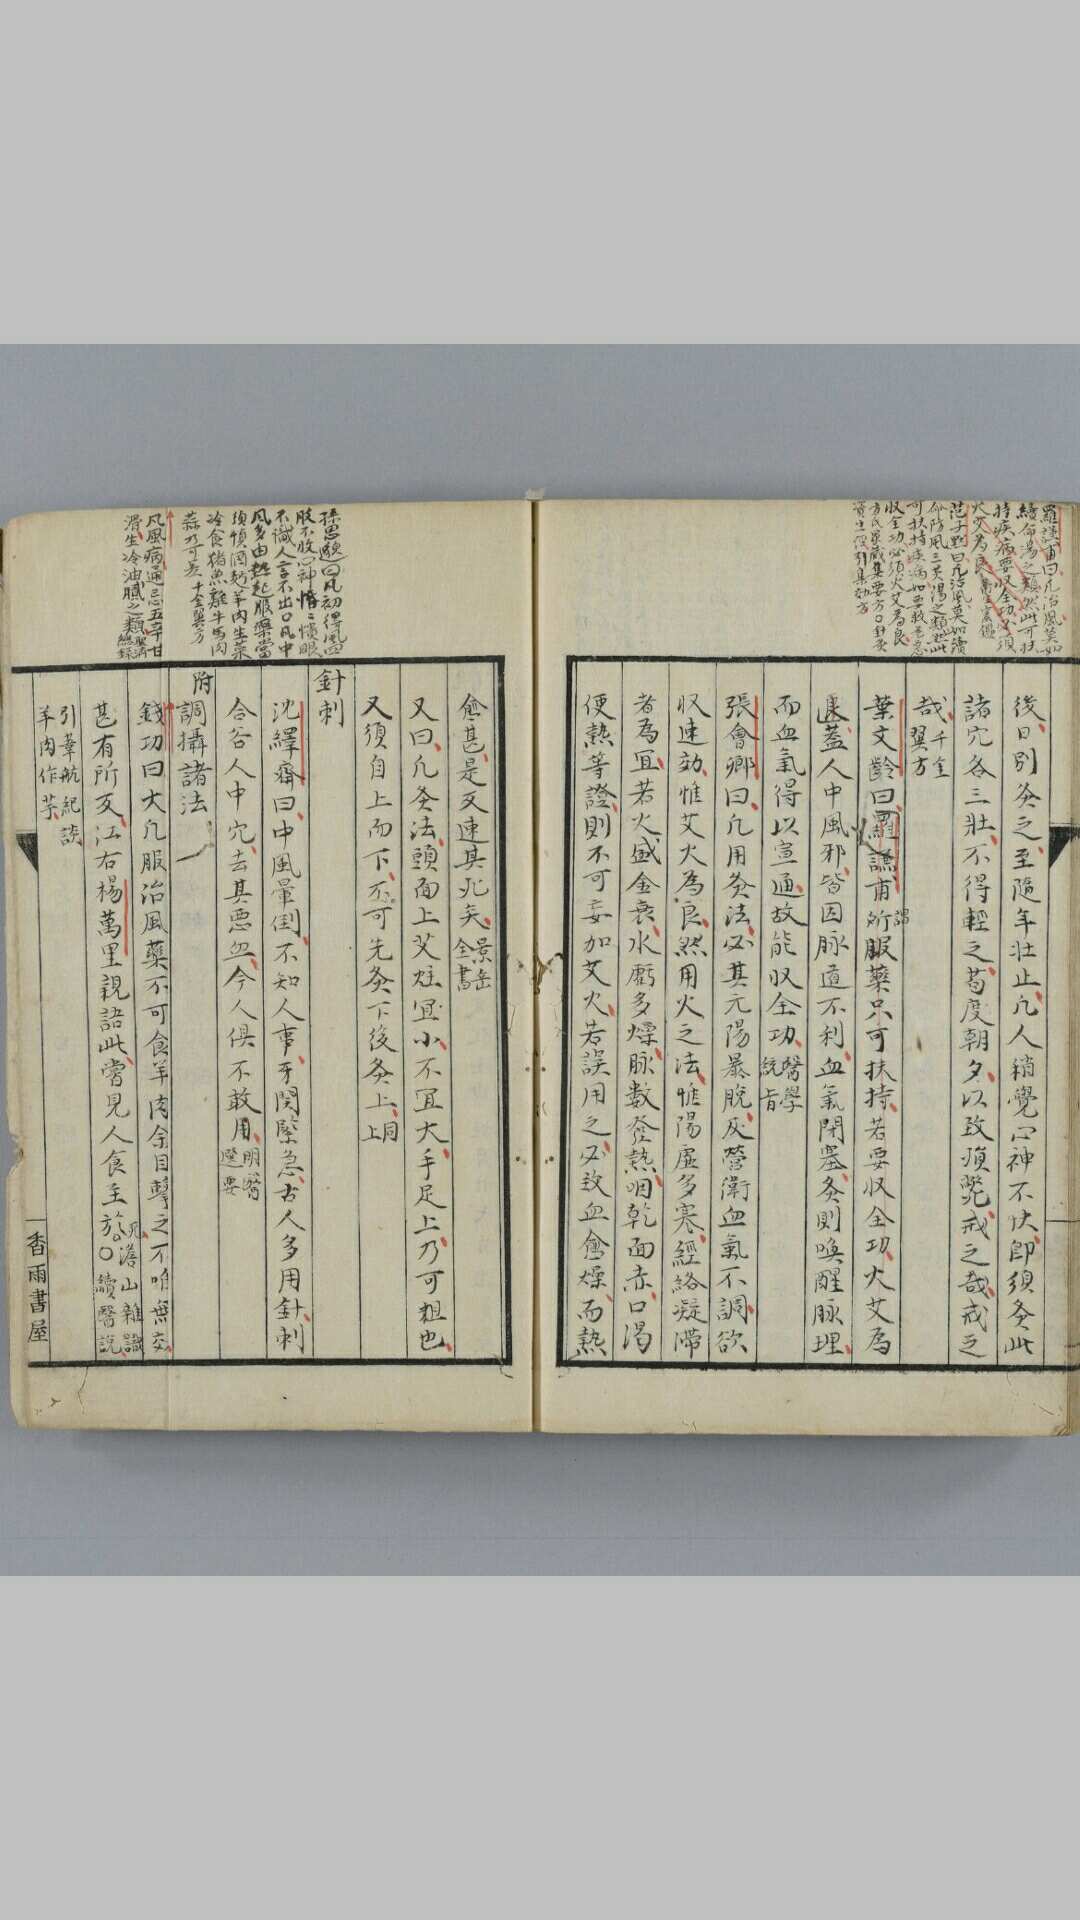 羅謙甫曰凡治風莫如
續命湯之類然此可扶
持疾病要収全功必須
火艾為良衛生宝鑑
范子黙曰凡治風莫如續
命防風三黄湯之類此
可扶持疾病如要救危急
収全功必須火艾為良
方氏家藏集要方〇針灸
資生經引集効方
後日別灸之至隨年壮止凡人稍覺心神不快即須灸此
諸穴各三壮不得輕之苟度朝夕以致殞斃戒之哉戒之
哉千金翼方
葉文齡曰羅謙甫所謂服藥只可扶持若要収全功火艾為
良蓋人中風邪皆因脉道不利血氣閉塞灸則喚醒脉理
而血氣得以宣通故能収全功醫學統旨
張會卿曰凡用灸法必其元陽暴脫及營衛血氣不調欲
収速効惟艾火為良然用火之法惟陽虚多寒經絡凝滯
者為宜若火盛金衰水虧多燥脉數發熱咽乾面赤口渴
便熱等證則不可妄加艾火若誤用之必致血愈燥而熱
愈甚是反速其死矣景岳全書
又曰凡灸法頭面上艾炷宜小不宜大手足上乃可粗也
又須自上而下不可先灸下後灸上同上
針刺
沈繹齋曰中風暈倒不知人事牙関緊急古人多用針刺
合谷人中穴去其悪血今人俱不敢用明醫選要
附調攝諸法
錢功曰大凡服治風藥不可食羊肉余目擊之不唯無交
甚有所反江右楊萬里親語此嘗見人食至於死澹山雜識〇續醫説
引葦航紀談
羊肉作芋
孫思邈曰凡初得風四
肢不收心神惛憒眼
不識人言不出口凡中
風多由熱起服藥當
須慎酒麪羊肉生菜
冷食猪魚雞牛馬肉
蒜乃可矣千金翼方
凡風病通忌五辛甘
滑生冷油膩之類聖濟總録
香雨書屋